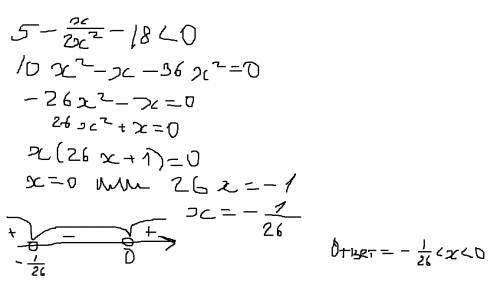 5 - x/2x² - 18 < 0
10x² - x - 36x² = 0
-26x² - x = 0
26x² + x = 0
x(26x + 1) = 0
x = 0 или 26x = -1
x = -1/26
+ - +
-1/26 0
Ответ = -1/26 < x < 0